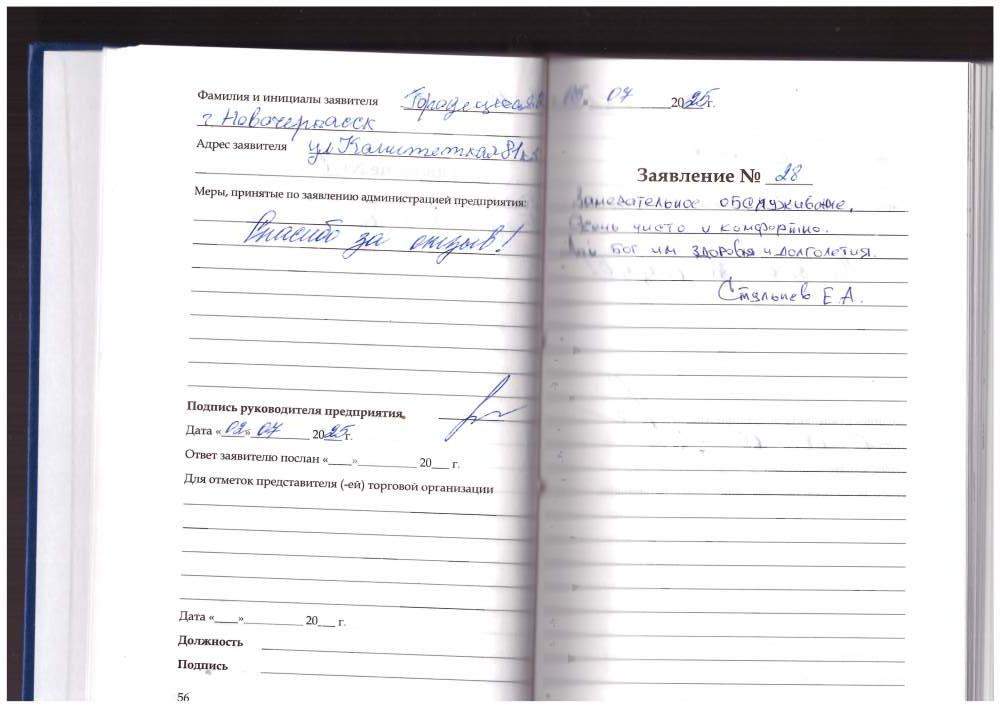 Фамилия и инициалы заявителя
г Новочеркасск
Адрес заявителя ул Комитетская 81
Меры, принятые по заявлению администрацией предприятия:
Спасибо за отзыв!
Подпись руководителя предприятия,
Дата «02» 07 2025г.
Ответ заявителю послан «____»__________ 20___ г.
Для отметок представителя (-ей) торговой организации
Дата «____»__________ 20___ г.
Должность
Подпись
56
07 2025г.
Заявление № 28
Замечательное обслуживание,
Очень чисто и комфортно.
Бог им здоровья и долголетия.
Е А.